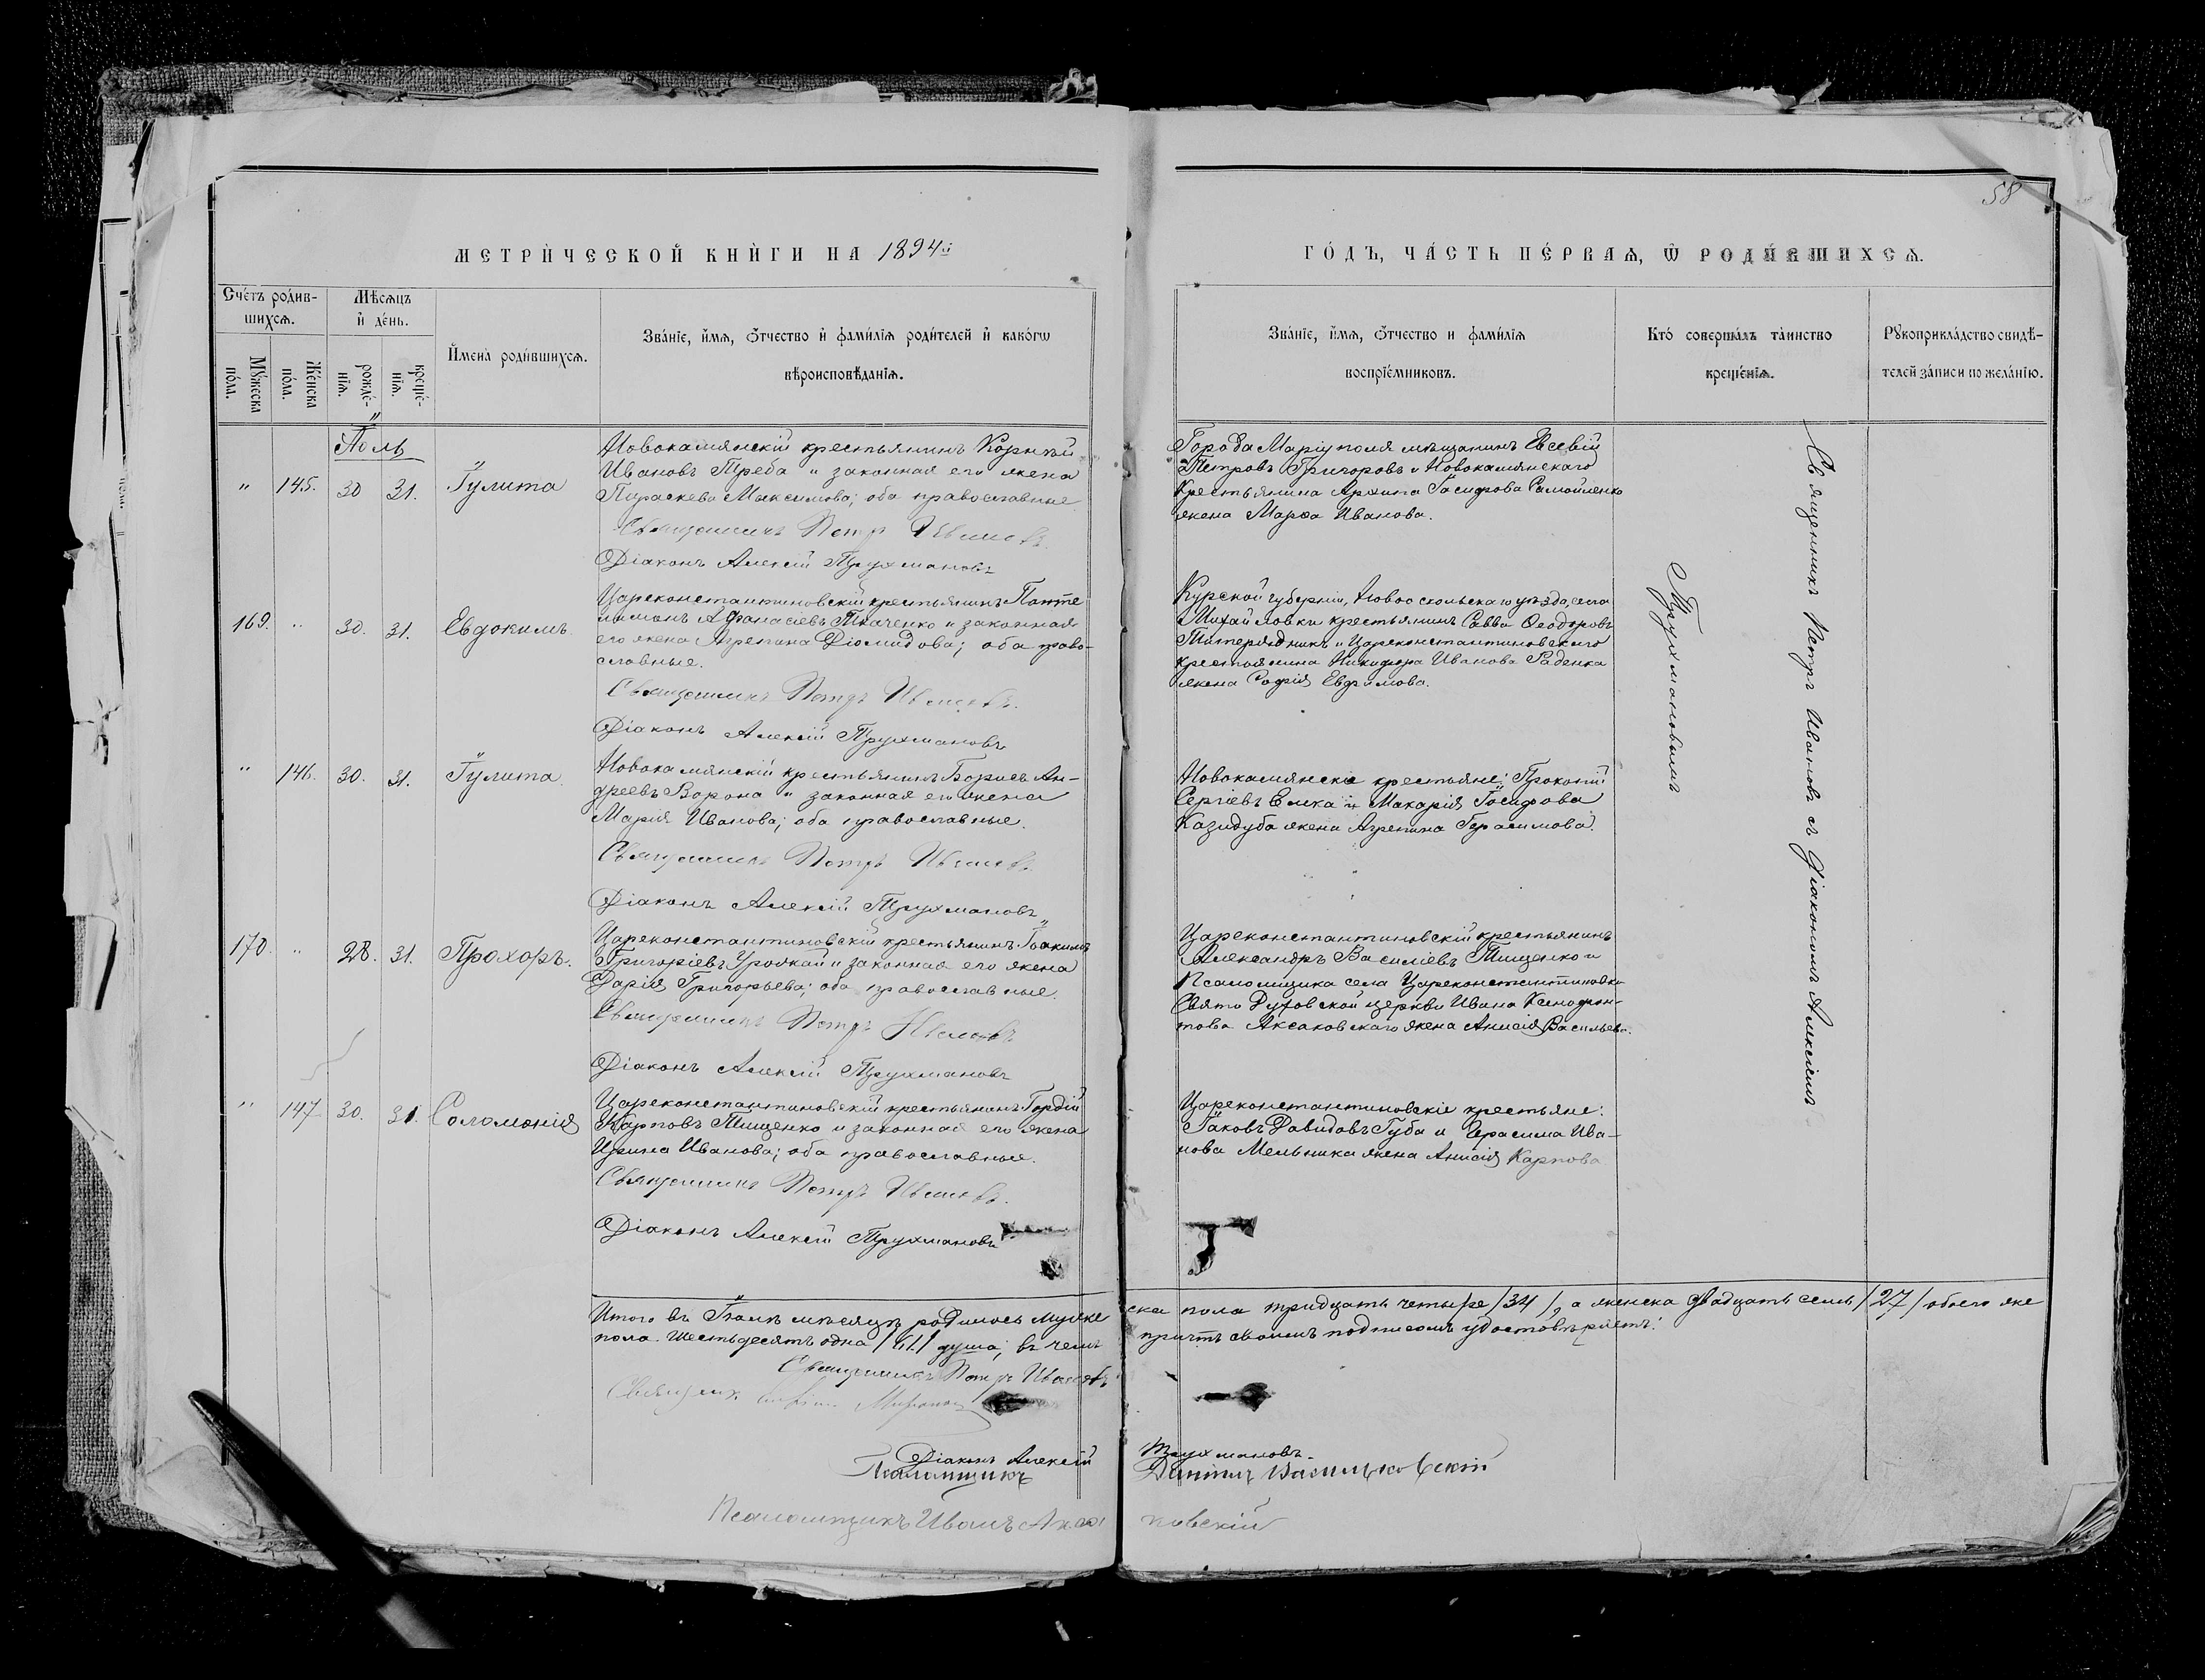 58
МЕТРИ́ЧЕСКОЙ КНИ́ГИ НА 1894й
ГО́ДЪ, ЧА́СТЬ ПЕ́РВАѦ, Ѡ҆ РОДИ́ВШИХСѦ.
Сче́тъ роди́в-
шихсѧ.
Мѣ́сѧцъ
и҆ де́нь.
Мꙋ́жеска
по́ла.
Же́нска
по́ла.
рожде́-
нїѧ.
креще́-
нїѧ.
И҆мена̀ роди́вшихсѧ.
Зва́нїе, и҆́мѧ, ѻ҆́тчество и҆ фами́лїѧ роди́телей и҆ како́гѡ
вѣроисповѣ́данїѧ.
Зва́нїе, и҆́мѧ, ѻ҆́тчество и фами́лїѧ
воспрїе́мниковъ.
Кто́ соверша́лъ та́инство
креще́нїѧ.
Рꙋкоприкла́дство свидѣ́-
телей за́писи по жела́нїю.
Іюль
" 145. 30 31. Іулита
Новокамянскій крестьянинъ Корнѣй
Ивановъ Треба и законная его жена
Параскева Максимова; оба православные
Священникъ Петръ Ивановъ
Діаконъ Алексій Трухмановъ
Города Маріуполя мѣщанинъ Евсевій
Петровъ Григоровъ и Новокамянскаго
Крестьянина Архипа Іосифова Самойленко
жена Марѳа Иванова.
169. " 30. 31. Евдокимъ
Цареконстантиновскій крестьянинъ Панте
лимонъ Афанасіевъ Ткаченко и законная
его жена Агрепина Діомидова; оба право-
славные.
Священникъ Петръ Ивановъ.
Діаконъ Алексій Трухмановъ
Курской губерніи, Новооскольскаго уѣзда, села
Михайловки крестьянинъ Савва Ѳеодоровъ
и Цареконстантиновскаго
крестьянина Никифора Иванова Раденка
жена Софія Евфимова.
" 146. 30. 31. Іулита
Новокамянскій крестьянинъ Борисъ Ан-
дреевъ Ворона и законная его жена
Марія Иванова; оба православные.
Священникъ Петръ Ивановъ.
Діаконъ Алексій Трухмановъ
Новокамянскіе крестьяне: Прокопій
Сергіевъ Емка и Макарія Іосифова
Казидуба жена Агрепина Герасимова.
170. " 28. 31. Прохоръ.
Цареконстантиновскій крестьянинъ Іоакимъ
Григоріевъ и законная его жена
Дарія Григорьева; оба православные.
Священникъ Петръ Ивановъ
Діаконъ Алексій Трухмановъ
Цареконстантиновскій крестьянинъ
Александръ Василіевъ Тищенко и
Псаломщика села Цареконстантиновки
Свято Духовской церкви Ивана Ксенофон-
това Аксаковскаго жена Анисія Васильева.
" 147 30. 31. Соломонія
Цареконстантиновскій крестьянинъ Гордій
Карповъ Тищенко и законная его жена
Ирина Иванова; оба православные.
Священникъ Петръ Ивановъ.
Діаконъ Алексій Трухмановъ
Цареконстантиновскіе крестьяне:
Іаковъ Давидовъ Губа и Герасима Ива-
нова Мельника жена Анисія Карпова
Священникъ Петръ Ивановъ съ Діакономъ Алексіемъ
Трухмановымъ
Итого въ Іюлѣ мѣсяцѣ родилось мужеска пола тридцать четыре /34/, а женска двадцать семь /27/ обоего же
пола. Шестьдесятъ одна /61/ душа; въ чемъ причтъ своимъ подписомъ удостовѣряетъ:
Священникъ Петръ Ивановъ
Священник
Діаконъ Алексій Трухмановъ.
Псаломщикъ
Псаломщикъ Иванъ